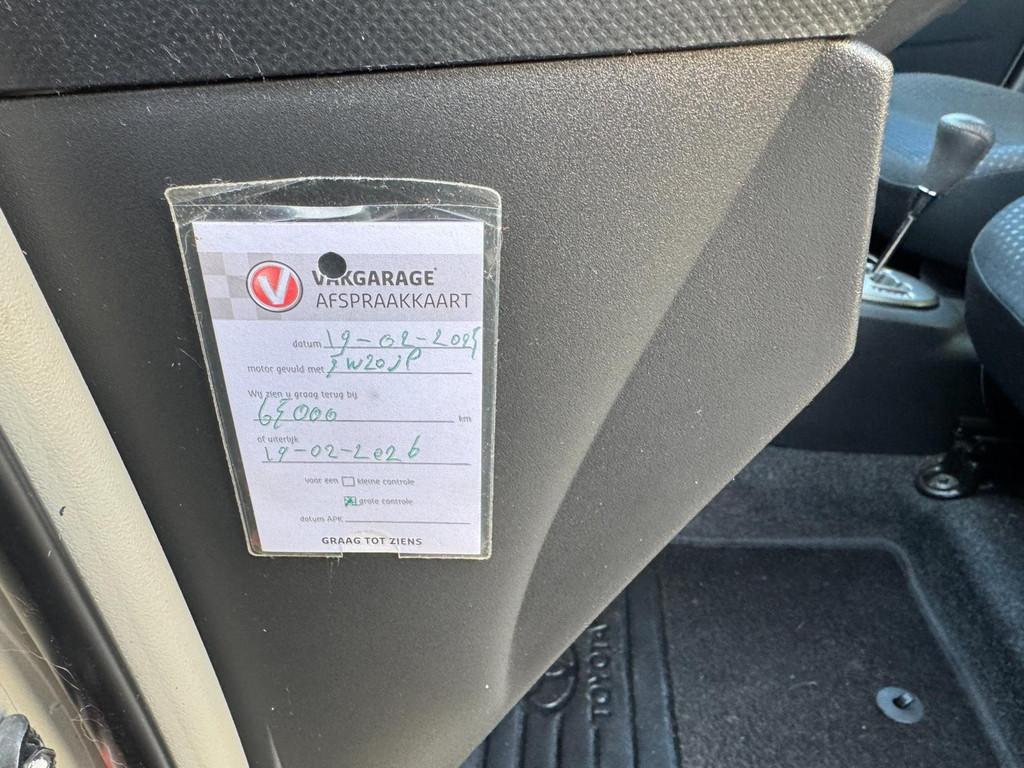 V VAKGARAGE
AFSPRAAKKAART
datum 19-02-2025
motor gevuld met
Wij zien u graag terug bij
65000 km
of uiterlijk
19-02-2026
voor een kleine controle
grote controle
datum APK
GRAAG TOT ZIENS
TOYOTA